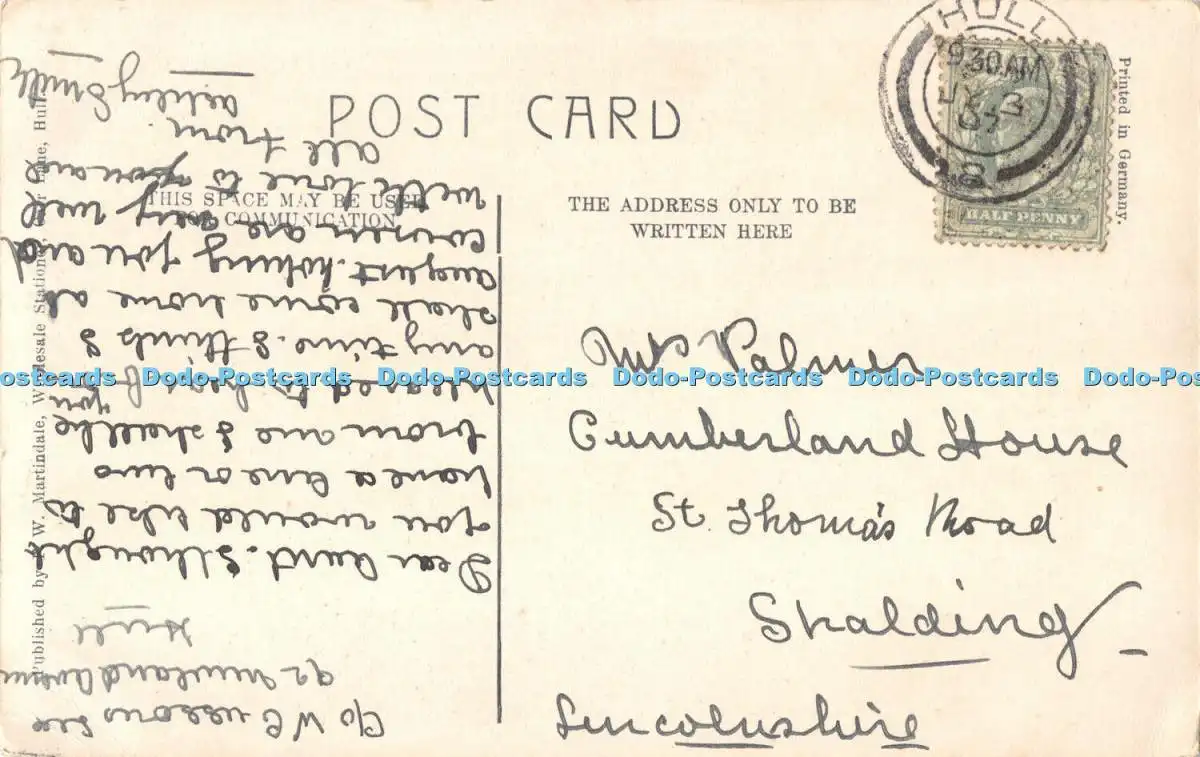 POST CARD
THIS SPACE MAY BE USED
FOR COMMUNICATION
THE ADDRESS ONLY TO BE
WRITTEN HERE
HULL
9.30AM
JY 3
07
HALF PENNY
Printed in Germany.
Published by W. Martindale, Wholesale Lane, Hull.
Mrs Palmer
Cumberland House
St. Thomas Road
Spalding
Lincolnshire
C/o W Cussons
92 Newland Avenue
Hull
Dear Aunt. I thought
you would like to
have a line or two
from me I shall be
pleased to hear f you
any time. I think I
shall come home at
august. hoping you and
cousin are very well
with love to you all
all from
Ashley Smith
Dodo-Postcards Dodo-Postcards Dodo-Postcards Dodo-Postcards Dodo-Postcards Dodo-Postcards